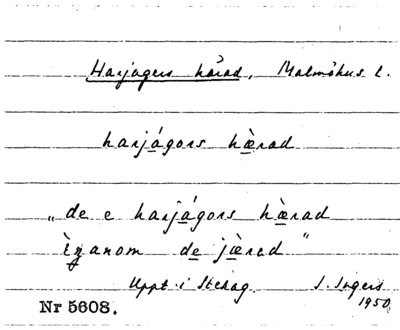 Harjagers härad, Malmöhus l.
harjágors hæ̀rad
„de e harjágors hæ̀rad
ìganom de jæ̀rad"
Uppt. i Stehag. S. Ingers
1950.
Nr 5608.